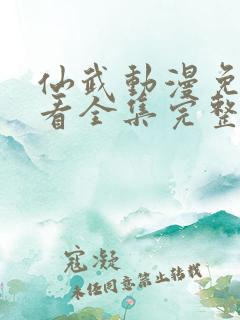 仙武動漫免
看全集完整
寇凝
未经同意禁止转载